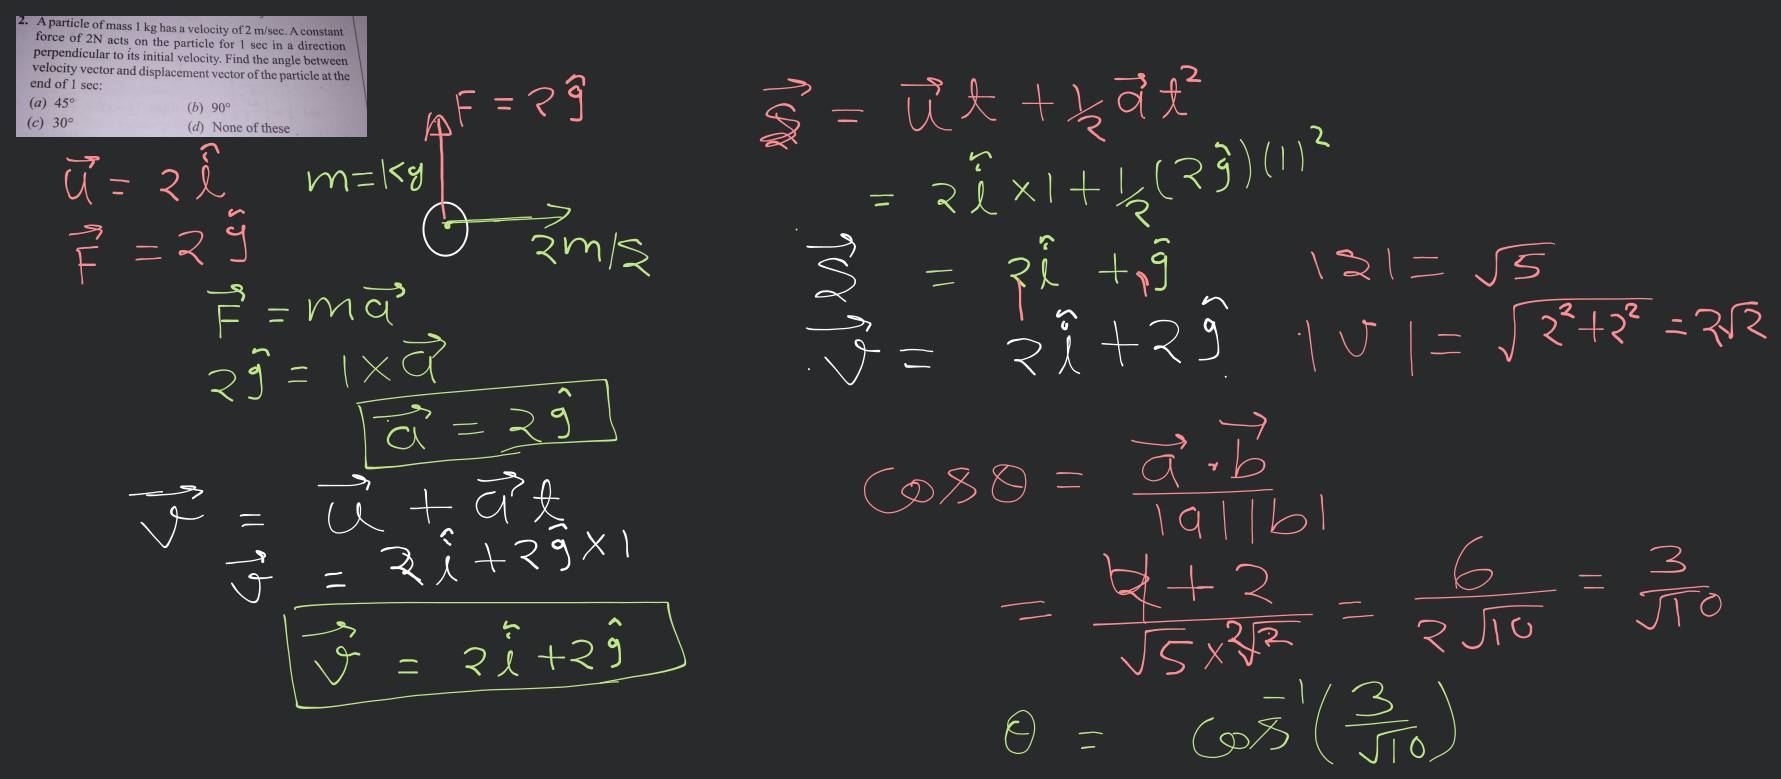 2. A particle of mass 1 kg has a velocity of 2 m/sec. A constant
force of 2N acts on the particle for 1 sec in a direction
perpendicular to its initial velocity. Find the angle between
velocity vector and displacement vector of the particle at the
end of 1 sec:
(a) 45° (b) 90°
(c) 30° (d) None of these
u⃗ = 2î
F⃗ = 2ĵ
m=1kg
F = 2ĵ
2m/s
F⃗ = ma⃗
2ĵ = 1×a⃗
a⃗ = 2ĵ
v⃗ = u⃗ + a⃗t
v⃗ = 2î+2ĵ×1
v⃗ = 2î+2ĵ
s⃗ = u⃗t + ½a⃗t²
= 2î×1+½(2ĵ)(1)²
s⃗ = 2î + ĵ
|s| = √5
v⃗ = 2î+2ĵ
|v| = √2²+2² = 2√2
cosθ = a⃗·b⃗/|a||b|
= 4+2/√5×2√2 = 6/2√10 = 3/√10
θ = cos⁻¹(3/√10)